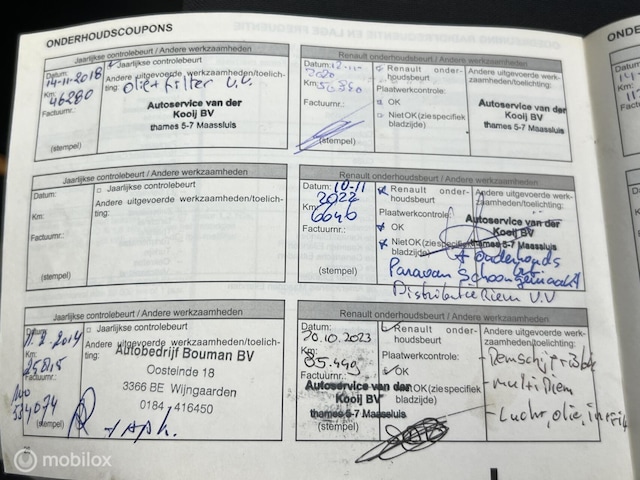 ONDERHOUDSCOUPONS
Jaarlijkse controlebeurt / Andere werkzaamheden
Datum:
14-11-2018
□ Jaarlijkse controlebeurt
Andere uitgevoerde werkzaamheden/toelich-
ting:
olie + filter V.V.
Km:
46280
Factuurnr.:
Autoservice van der
Kooij BV
thames 5-7 Maassluis
(stempel)
Renault onderhoudsbeurt / Andere werkzaamheden
Datum:
2020
Km:
□ Renault onder-
houdsbeurt
Plaatwerkcontrole:
□ OK
□ NietOK (zie specifiek
bladzijde)
Andere uitgevoerde werk-
zaamheden/toelichting:
Factuurnr.:
Autoservice van der
Kooij BV
thames 5-7 Maassluis
(stempel)
Jaarlijkse controlebeurt / Andere werkzaamheden
Datum:
□ Jaarlijkse controlebeurt
Andere uitgevoerde werkzaamheden/toelich-
ting:
Km:
Factuurnr.:
(stempel)
Renault onderhoudsbeurt / Andere werkzaamheden
Datum: 10-11
2022
Km:
Renault onder-
houdsbeurt
Plaatwerkcontrole:
OK
NietOK (zie specifiek
Andere uitgevoerde werk-
zaamheden/toelichting:
Factuurnr.:
Autoservice van der
Kooij BV
thames 5-7 Maassluis
+ onderhouds
Paravan Schoongemaakt
Distributie Riem V.V
(stempel)
Jaarlijkse controlebeurt / Andere werkzaamheden
Datum:
□ Jaarlijkse controlebeurt
Andere uitgevoerde werkzaamheden/toelich-
ting:
Km:
Factuurnr.:
Autobedrijf Bouman BV
Oosteinde 18
3366 BE Wijngaarden
0184 416450
(stempel)
+ APK.
Renault onderhoudsbeurt / Andere werkzaamheden
Datum:
20.10.2023
Km:
85.449
Renault onder-
houdsbeurt
Plaatwerkcontrole:
OK
NietOK (zie specifiek
bladzijde)
Andere uitgevoerde werk-
zaamheden/toelichting:
- multiriem
Autoservice van der
Kooij BV
thames 5-7 Maassluis
(stempel)
mobilox